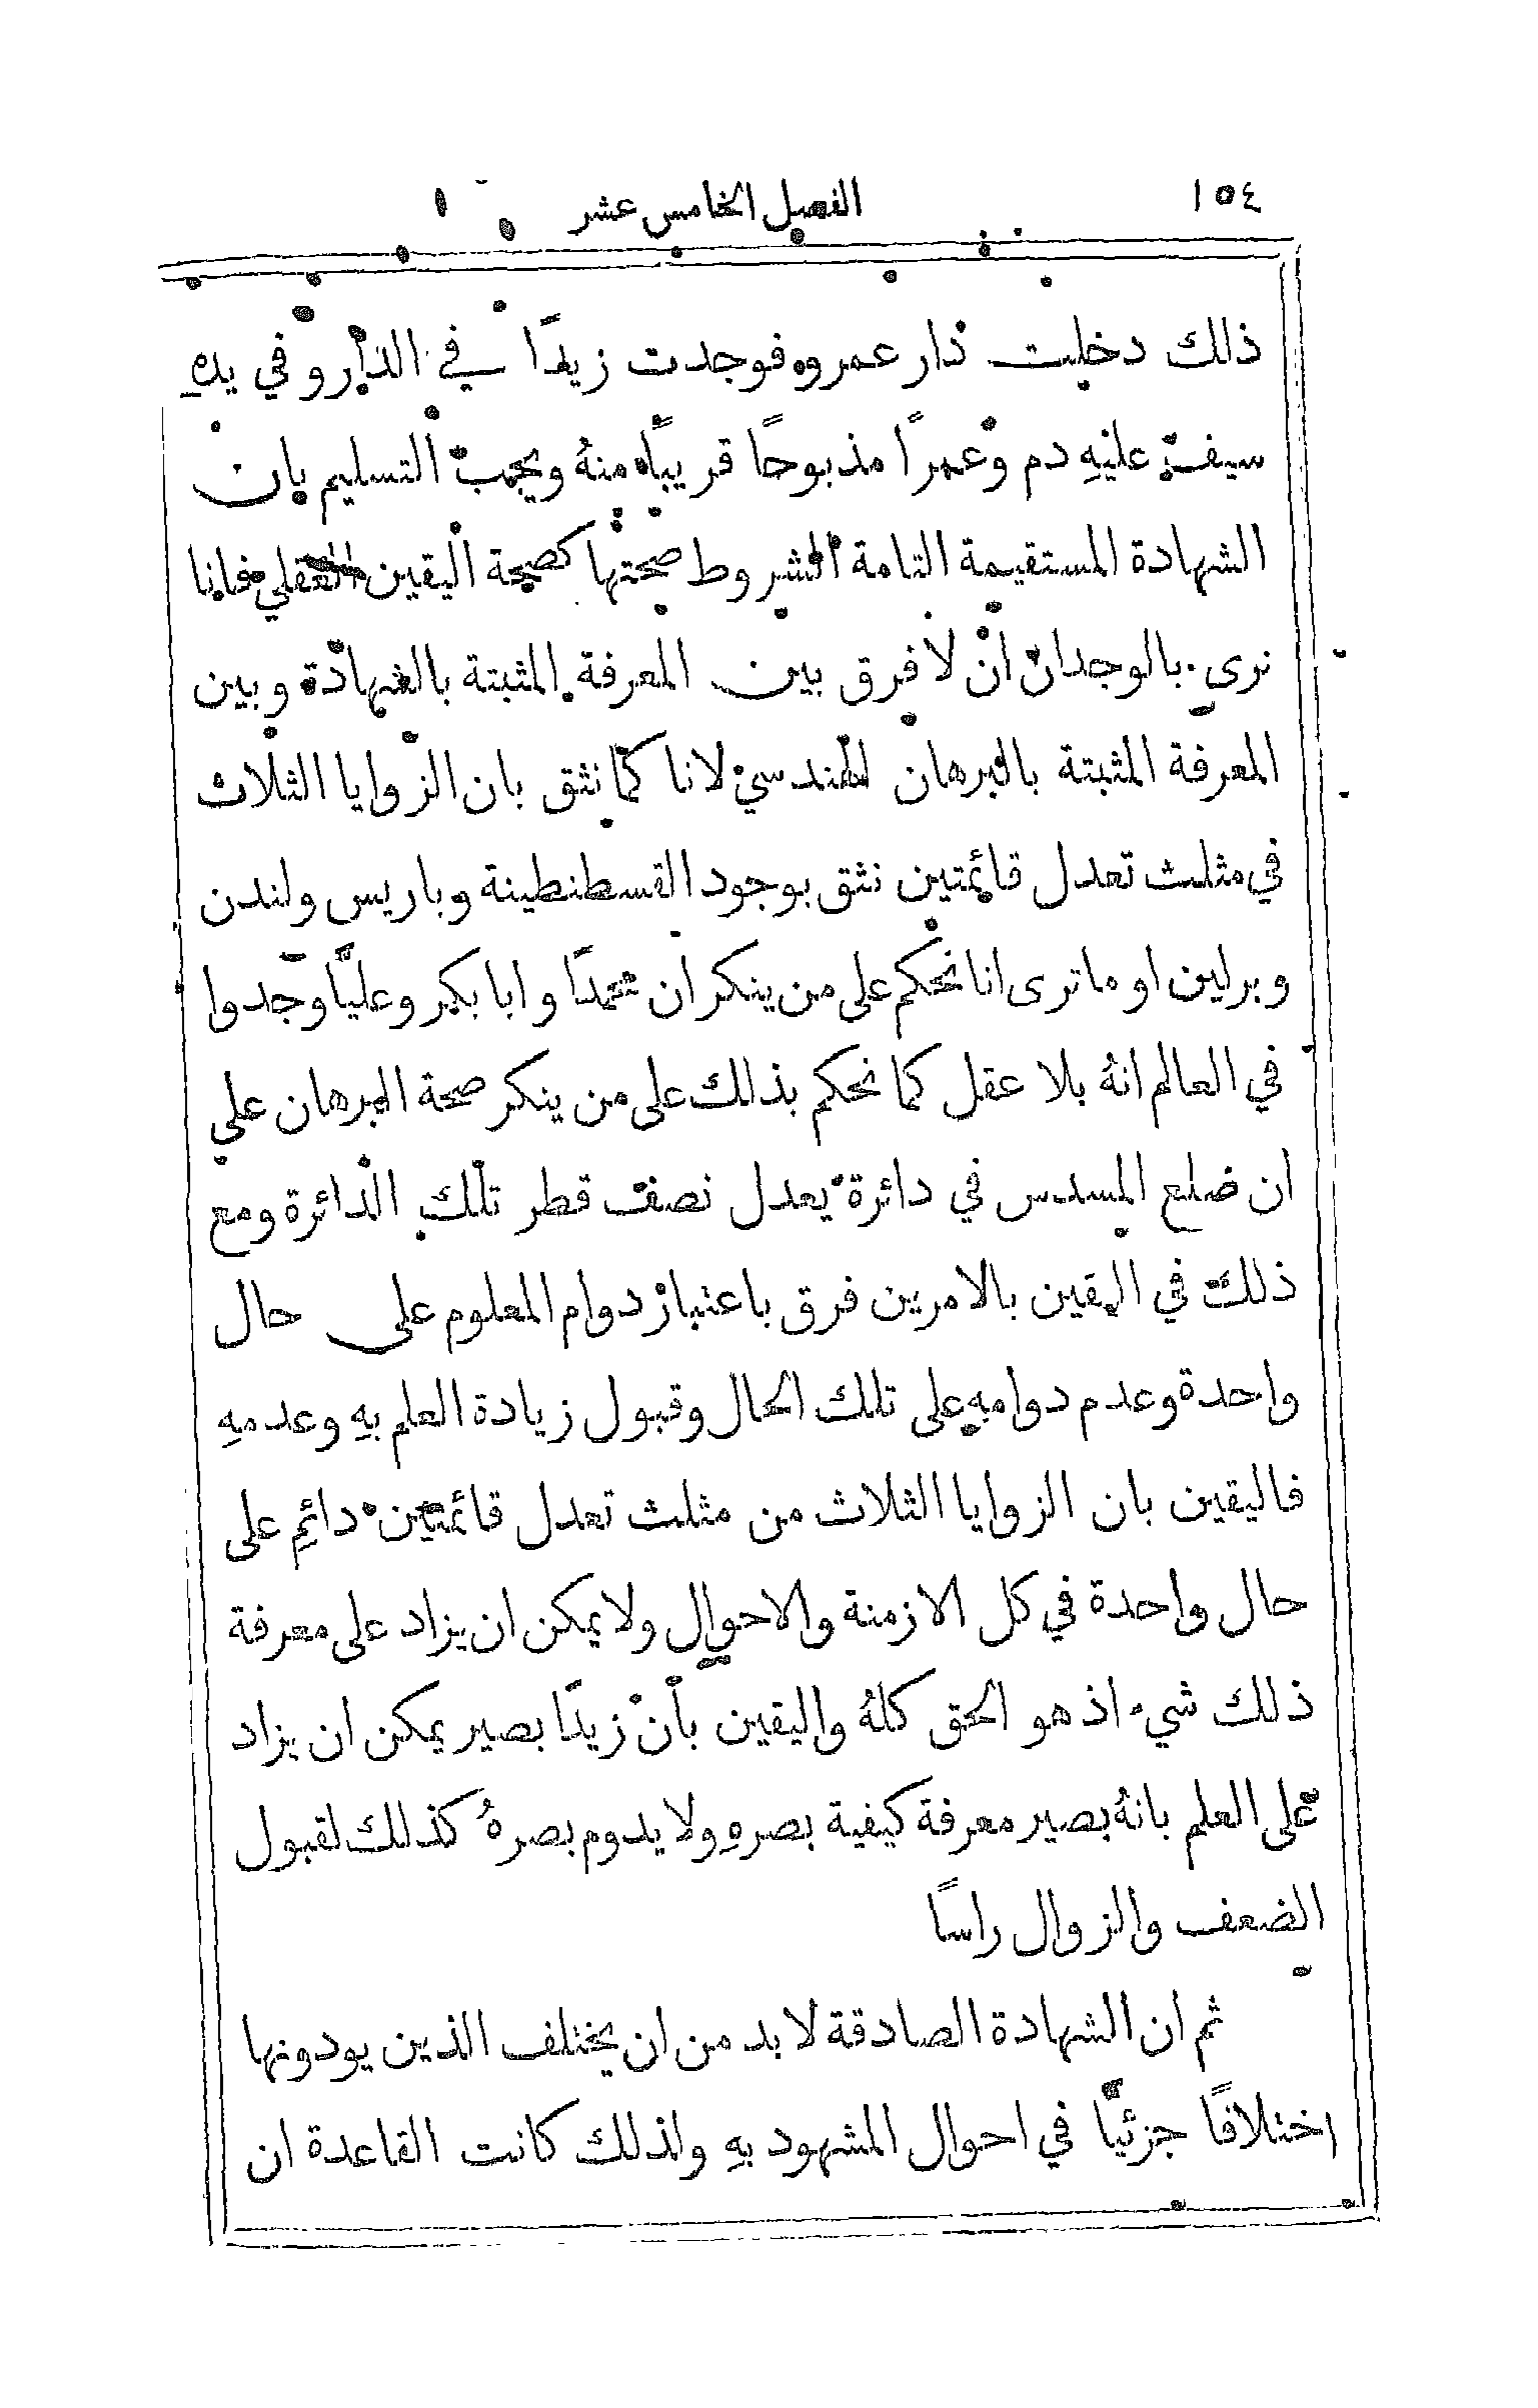 ١٥٤ الفصل الخامس عشر
ذلك دخلت دار عمرو فوجدت زيدًا في الدار وفي يدهِ
سيف عليهِ دم وعمرًا مذبوحًا قريبًا منهُ ويجب التسليم بان
الشهادة المستقيمة التامة الشروط صحتها كصحة اليقين العقلي فاننا
نرى بالوجدان ان لا فرق بين المعرفة المثبتة بالشهادة وبين
المعرفة المثبتة بالبرهان الهندسي لانا كما نثق بان الزوايا الثلاث
في مثلث تعدل قائمتين نثق بوجود القسطنطينة وباريس ولندن
وبرلين او ما ترى انا نحكم على من ينكر ان محمدًا وابا بكر وعليًا وجدوا
في العالم انهُ بلا عقل كما نحكم بذلك على من ينكر صحة البرهان على
ان ضلع المسدس في دائرة يعدل نصف قطر تلك الدائرة ومع
ذلك في اليقين بالامرين فرق باعتبار دوام المعلوم على حال
واحدة وعدم دوامهِ على تلك الحال وقبول زيادة العلم بهِ وعدمهِ
فاليقين بان الزوايا الثلاث من مثلث تعدل قائمتين دائم على
حال واحدة في كل الازمنة والاحوال ولا يمكن ان يزاد على معرفة
ذلك شيء اذ هو الحق كلهُ واليقين بأن زيدًا بصير يمكن ان يزاد
على العلم بانهُ بصير معرفة كيفية بصرهِ ولا يدوم بصرهُ كذلك لقبول
الضعف والزوال راسًا
ثم ان الشهادة الصادقة لا بد من ان يختلف الذين يودونها
اختلافًا جزئيًا في احوال المشهود بهِ ولذلك كانت القاعدة ان